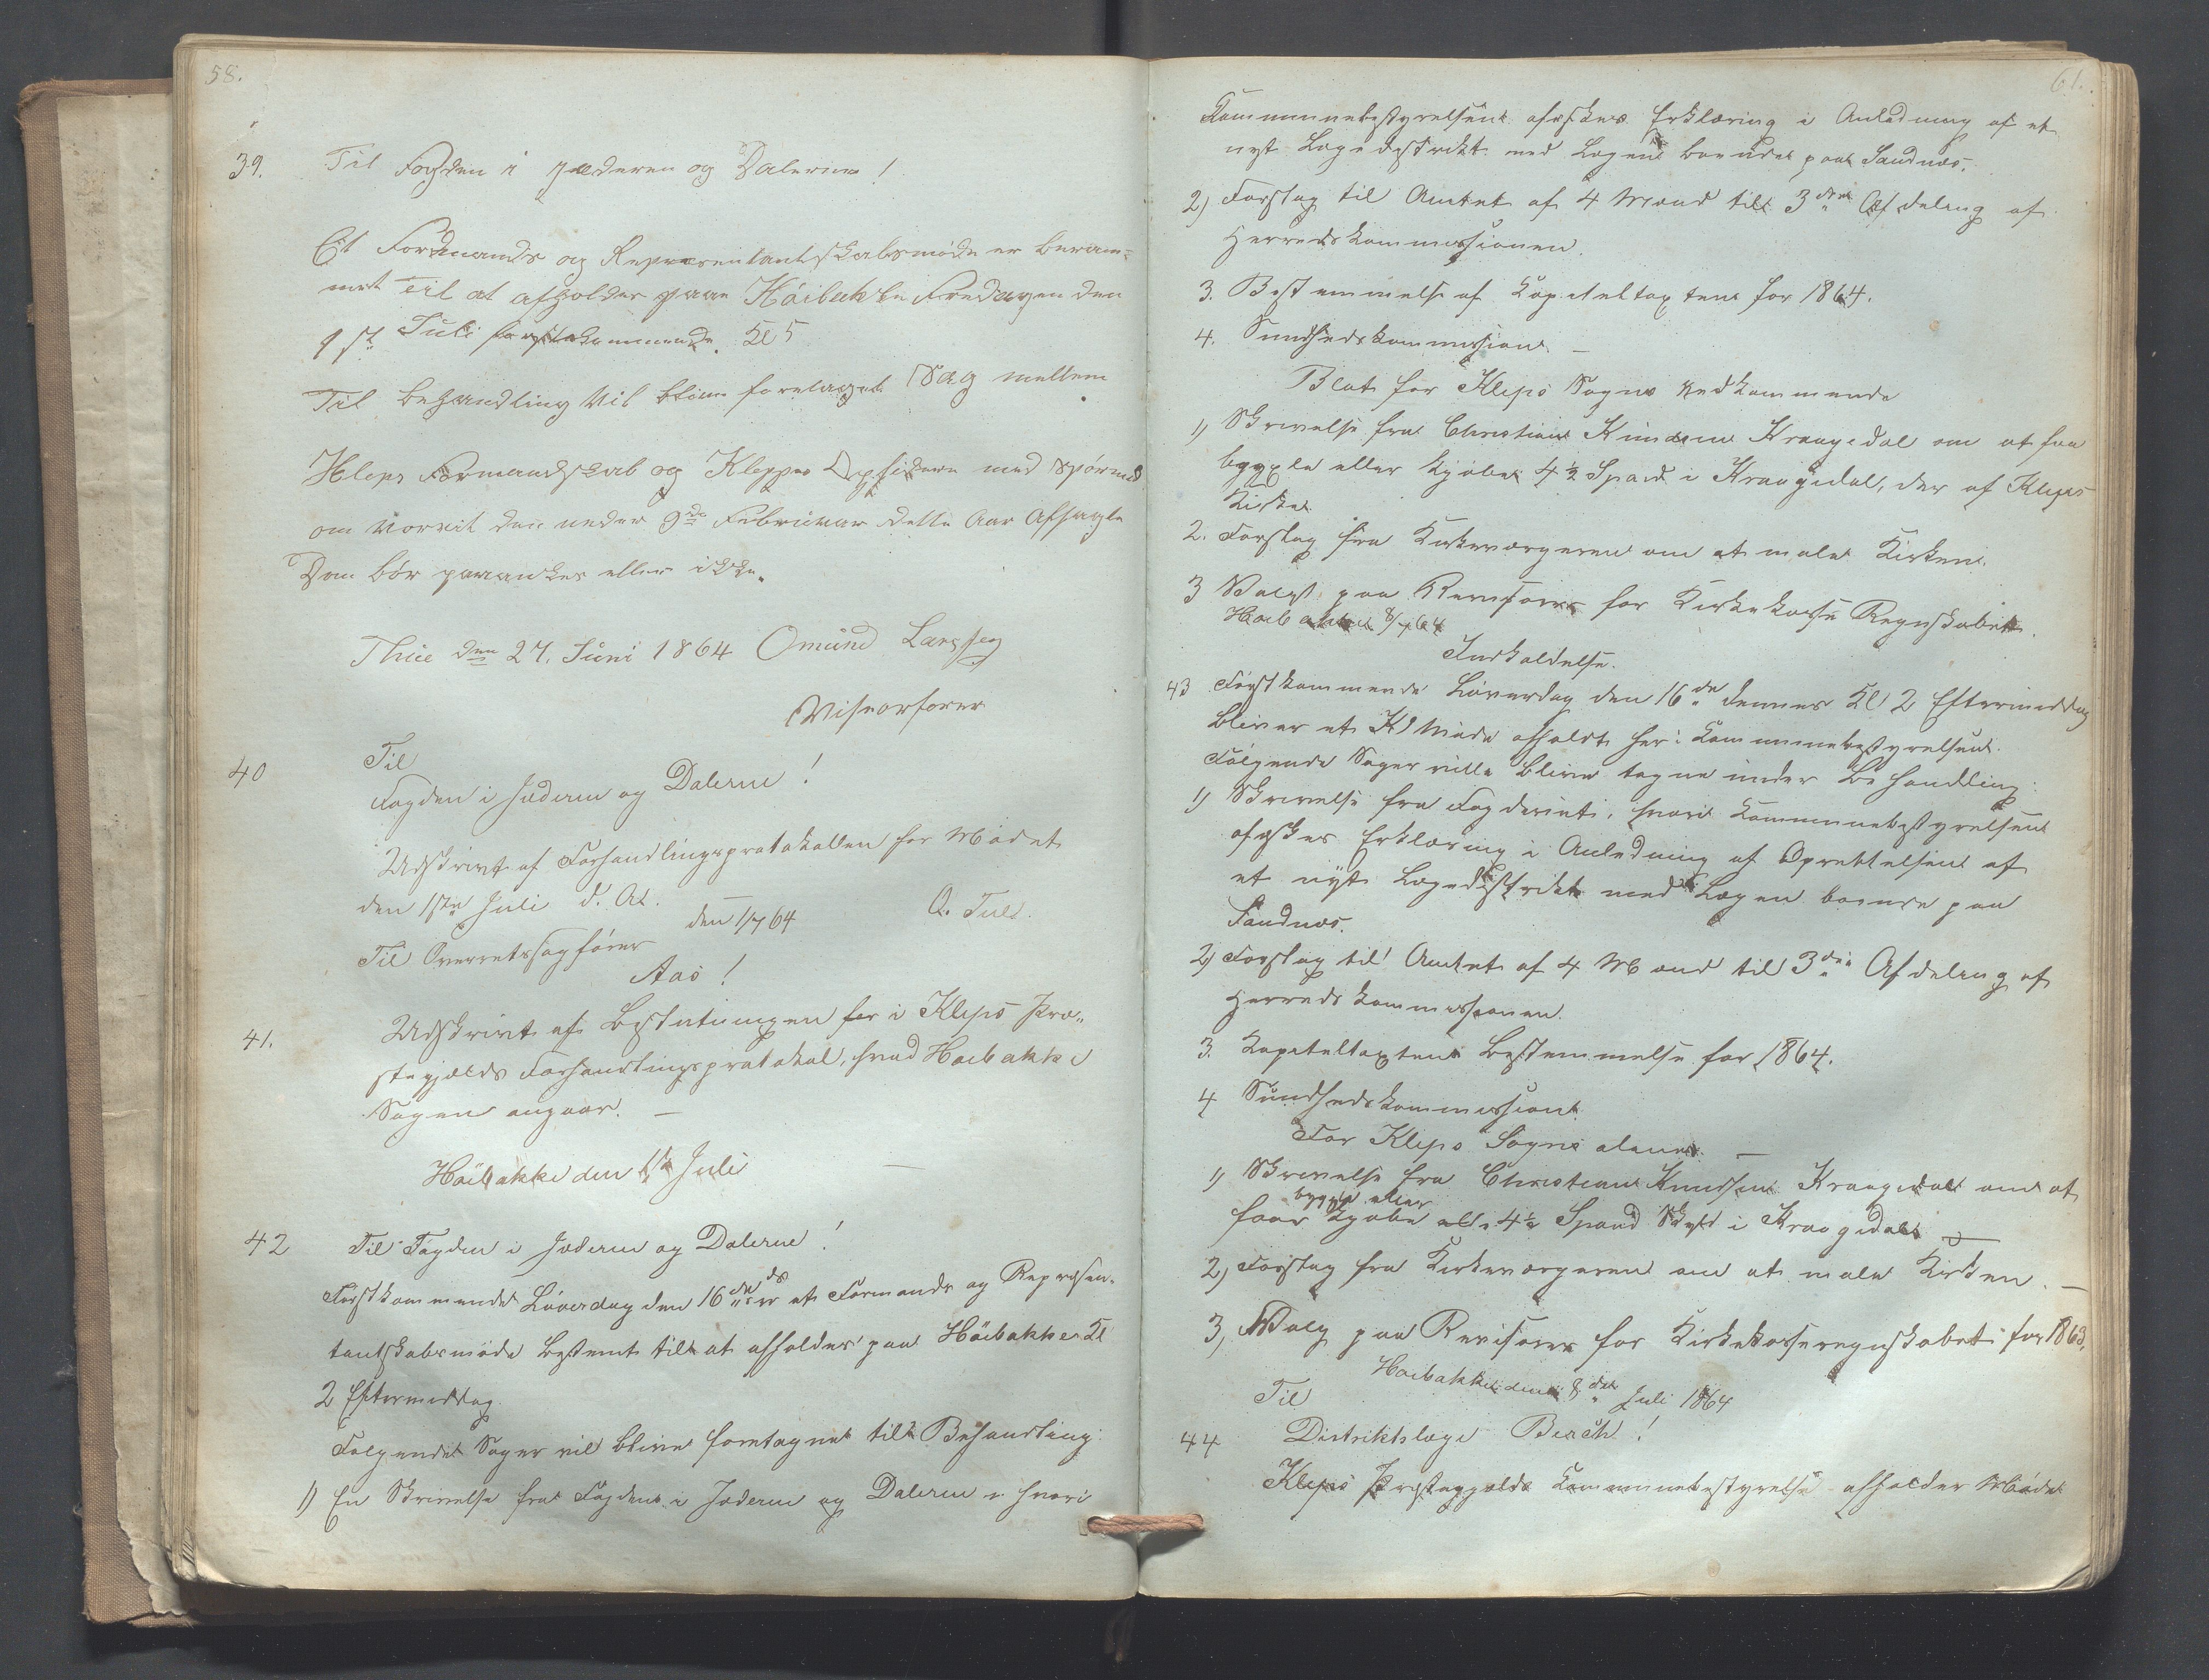 58.
39. Til Fogden i Jædderen og Dalerne!
Et Formands og Repræsentantskabsmøde er beram-
met til at afholdes paa Höibakke Fredagen den
1ste Juli förstkommende. Kl 5
Til behandling vil blive foretaget Sag mellem
Kleps Formandskab og Kleppes Opsidere med Spörsmaal
om vorvit den under 9de Februar dette Aar Afsagte
Dom bör paaankes eller ikke.
Thue den 27. Juni 1864 Omund Larssen
Viseorförer
40 Til
Fogden i Jæderen og Dalerne!
Udskrivt af Forhandlingsprotokollen for Mödet
den 1ste Juli d. A.
den 1/7 64 O. Tull.
Til Overretssagförer
Aas!
41. Udskrivt af Beslutningen her i Kleps Præ-
stegjælds Forhandlingsprotokol, hvad Hoibakke
Sagen angaar. —
Höibakke den 1ste Juli —
42 Til Fogden i Jæderen og Dalerne!
Förstkommende Löverdag den 16de ds er et Formands og Repræsen-
tantskabsmöde bestemt til at afholdes paa Höibakke Kl
2 Eftermiddag.
Følgende Sager vil blive foretagne til Behandling:
1) En Skrivelse fra Fogden i Jæderen og Dalerne i hvori
61.
Kommunebestyrelsens afæskes Erklæring i Anledning af et
nyt Lægedistrikt med Lægens boende paa Sandnæs.
2) Forslag til Amtet af 4 Mænd til 3die Afdeling af
Herredskommissionen.
3. Bestemmelse af Kapiteltaxten for 1864.
4. Sundhedskommission. —
Blot for Kleps Sogne vedkommende
1) Skrivelse fra Christian Knudsen Kraagedal om at faa
bygsle eller kjøbe 4½ Spand i Kraagedal, der af Kleps
Kirke.
2. Forslag fra Kirkeværgeren om at male Kirken.
3 Valg paa Revisorer for Kirkekasse Regnskabet.
Hoibakke 8/7 64
Indkaldelse.
43 Førstkommende Löverdag den 16de dennes Kl 2 Eftermiddag
bliver et Möde afholdt her i Kommunebestyrelsen.
Følgende Sager ville blive tagne under Behandling:
1) Skrivelse fra Fogderiet, hvori Kommunebestyrelsen
afæskes Erklæring i Anledning af Oprettelsen af
et nyt Lægedistrikt med Lægen boende paa
Sandnæs.
2) Forslag til Amtet af 4 Mænd til 3die Afdeling af
Herredskommissionen.
3. Kapiteltaxtens Bestemmelse for 1864.
4 Sundhedskommission.
For Kleps Sogne alene. —
1) Skrivelse fra Christian Knudsen Kraagedal om at
bygsle eller
faa kjøbe 4½ Spand Skyld i Kraagedal —
2) Forslag fra Kirkeværgeren om at male Kirken. —
3, Valg paa Revisorer for Kirkekasseregnskabet for 1863.
Hoibakke den 8de Juli 1864
Til
44 Distriktslæge Beach!
Kleps Præstegjælds Kommunebestyrelse afholder Möde